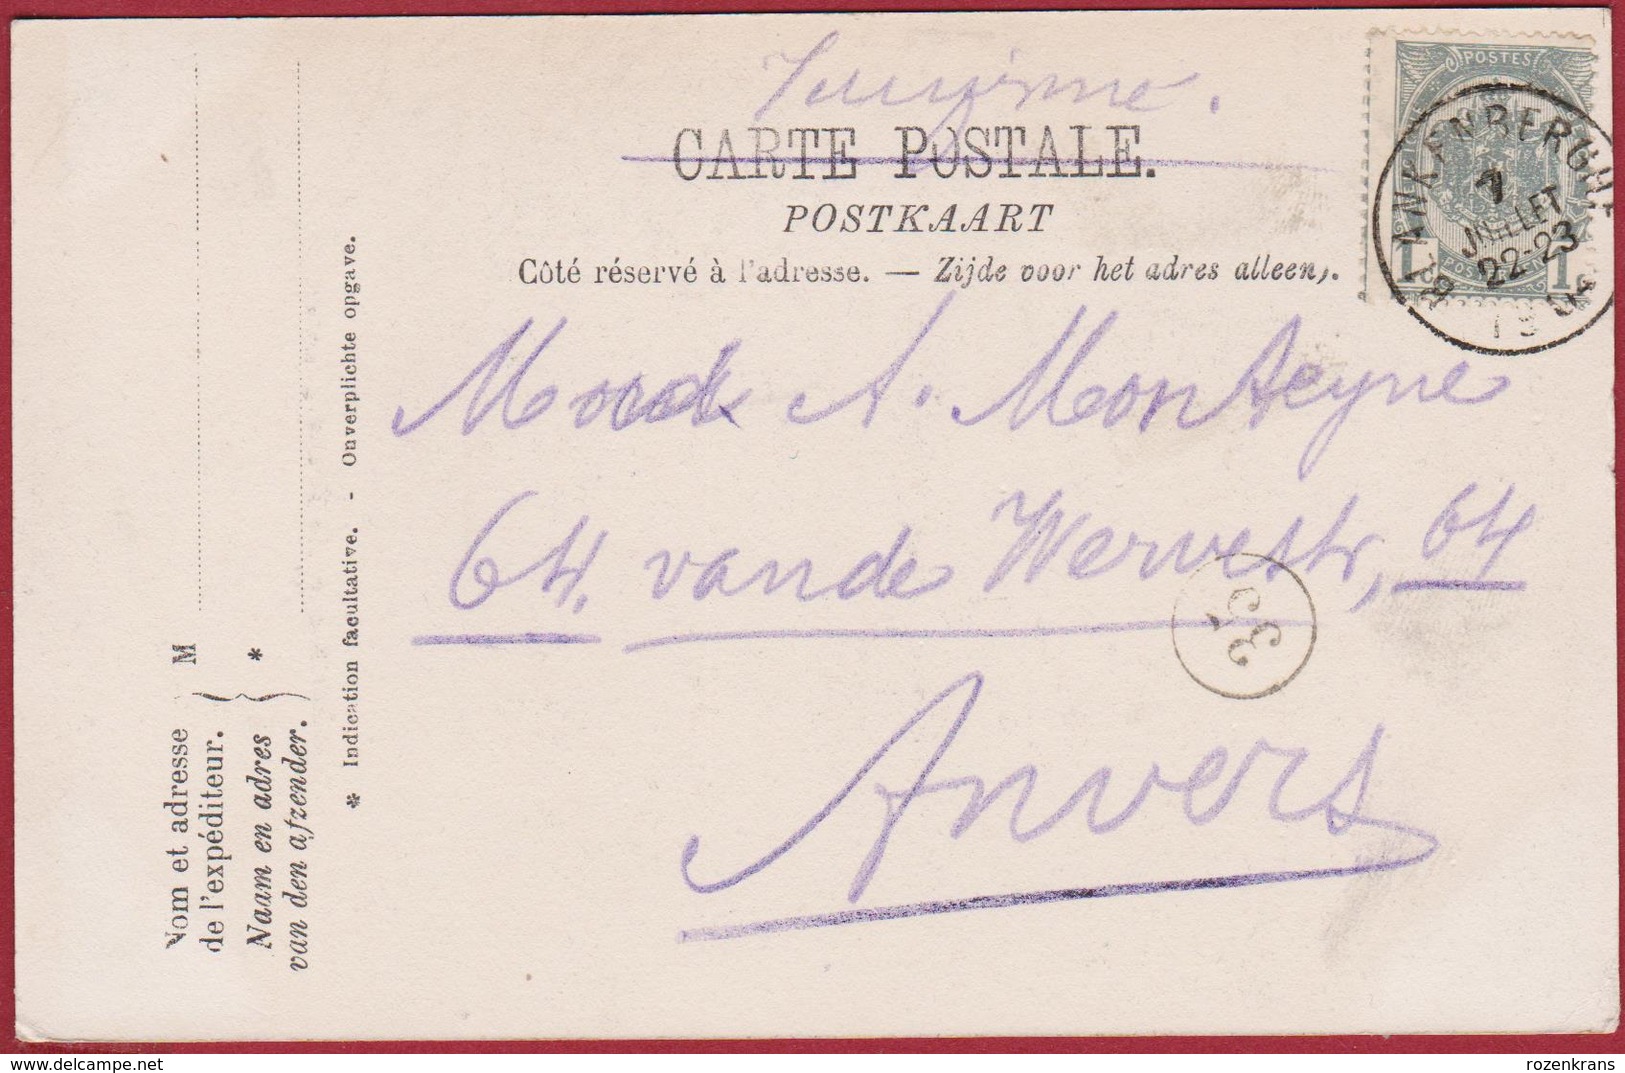 Imprimé.
CARTE POSTALE.
POSTKAART
Côté réservé à l'adresse. — Zijde voor het adres alleen.
POSTES
BLANKENBERGHE
7
JUILLET
22-23
19 04
1 POSTERIJEN 1
A. Monteyne
64. vande Wervestr, 64
35
Anvers
Nom et adresse
de l'expéditeur.
M
Naam en adres
van den afzender.
*
* Indication facultative. - Onverplichte opgave.
rozenkrans